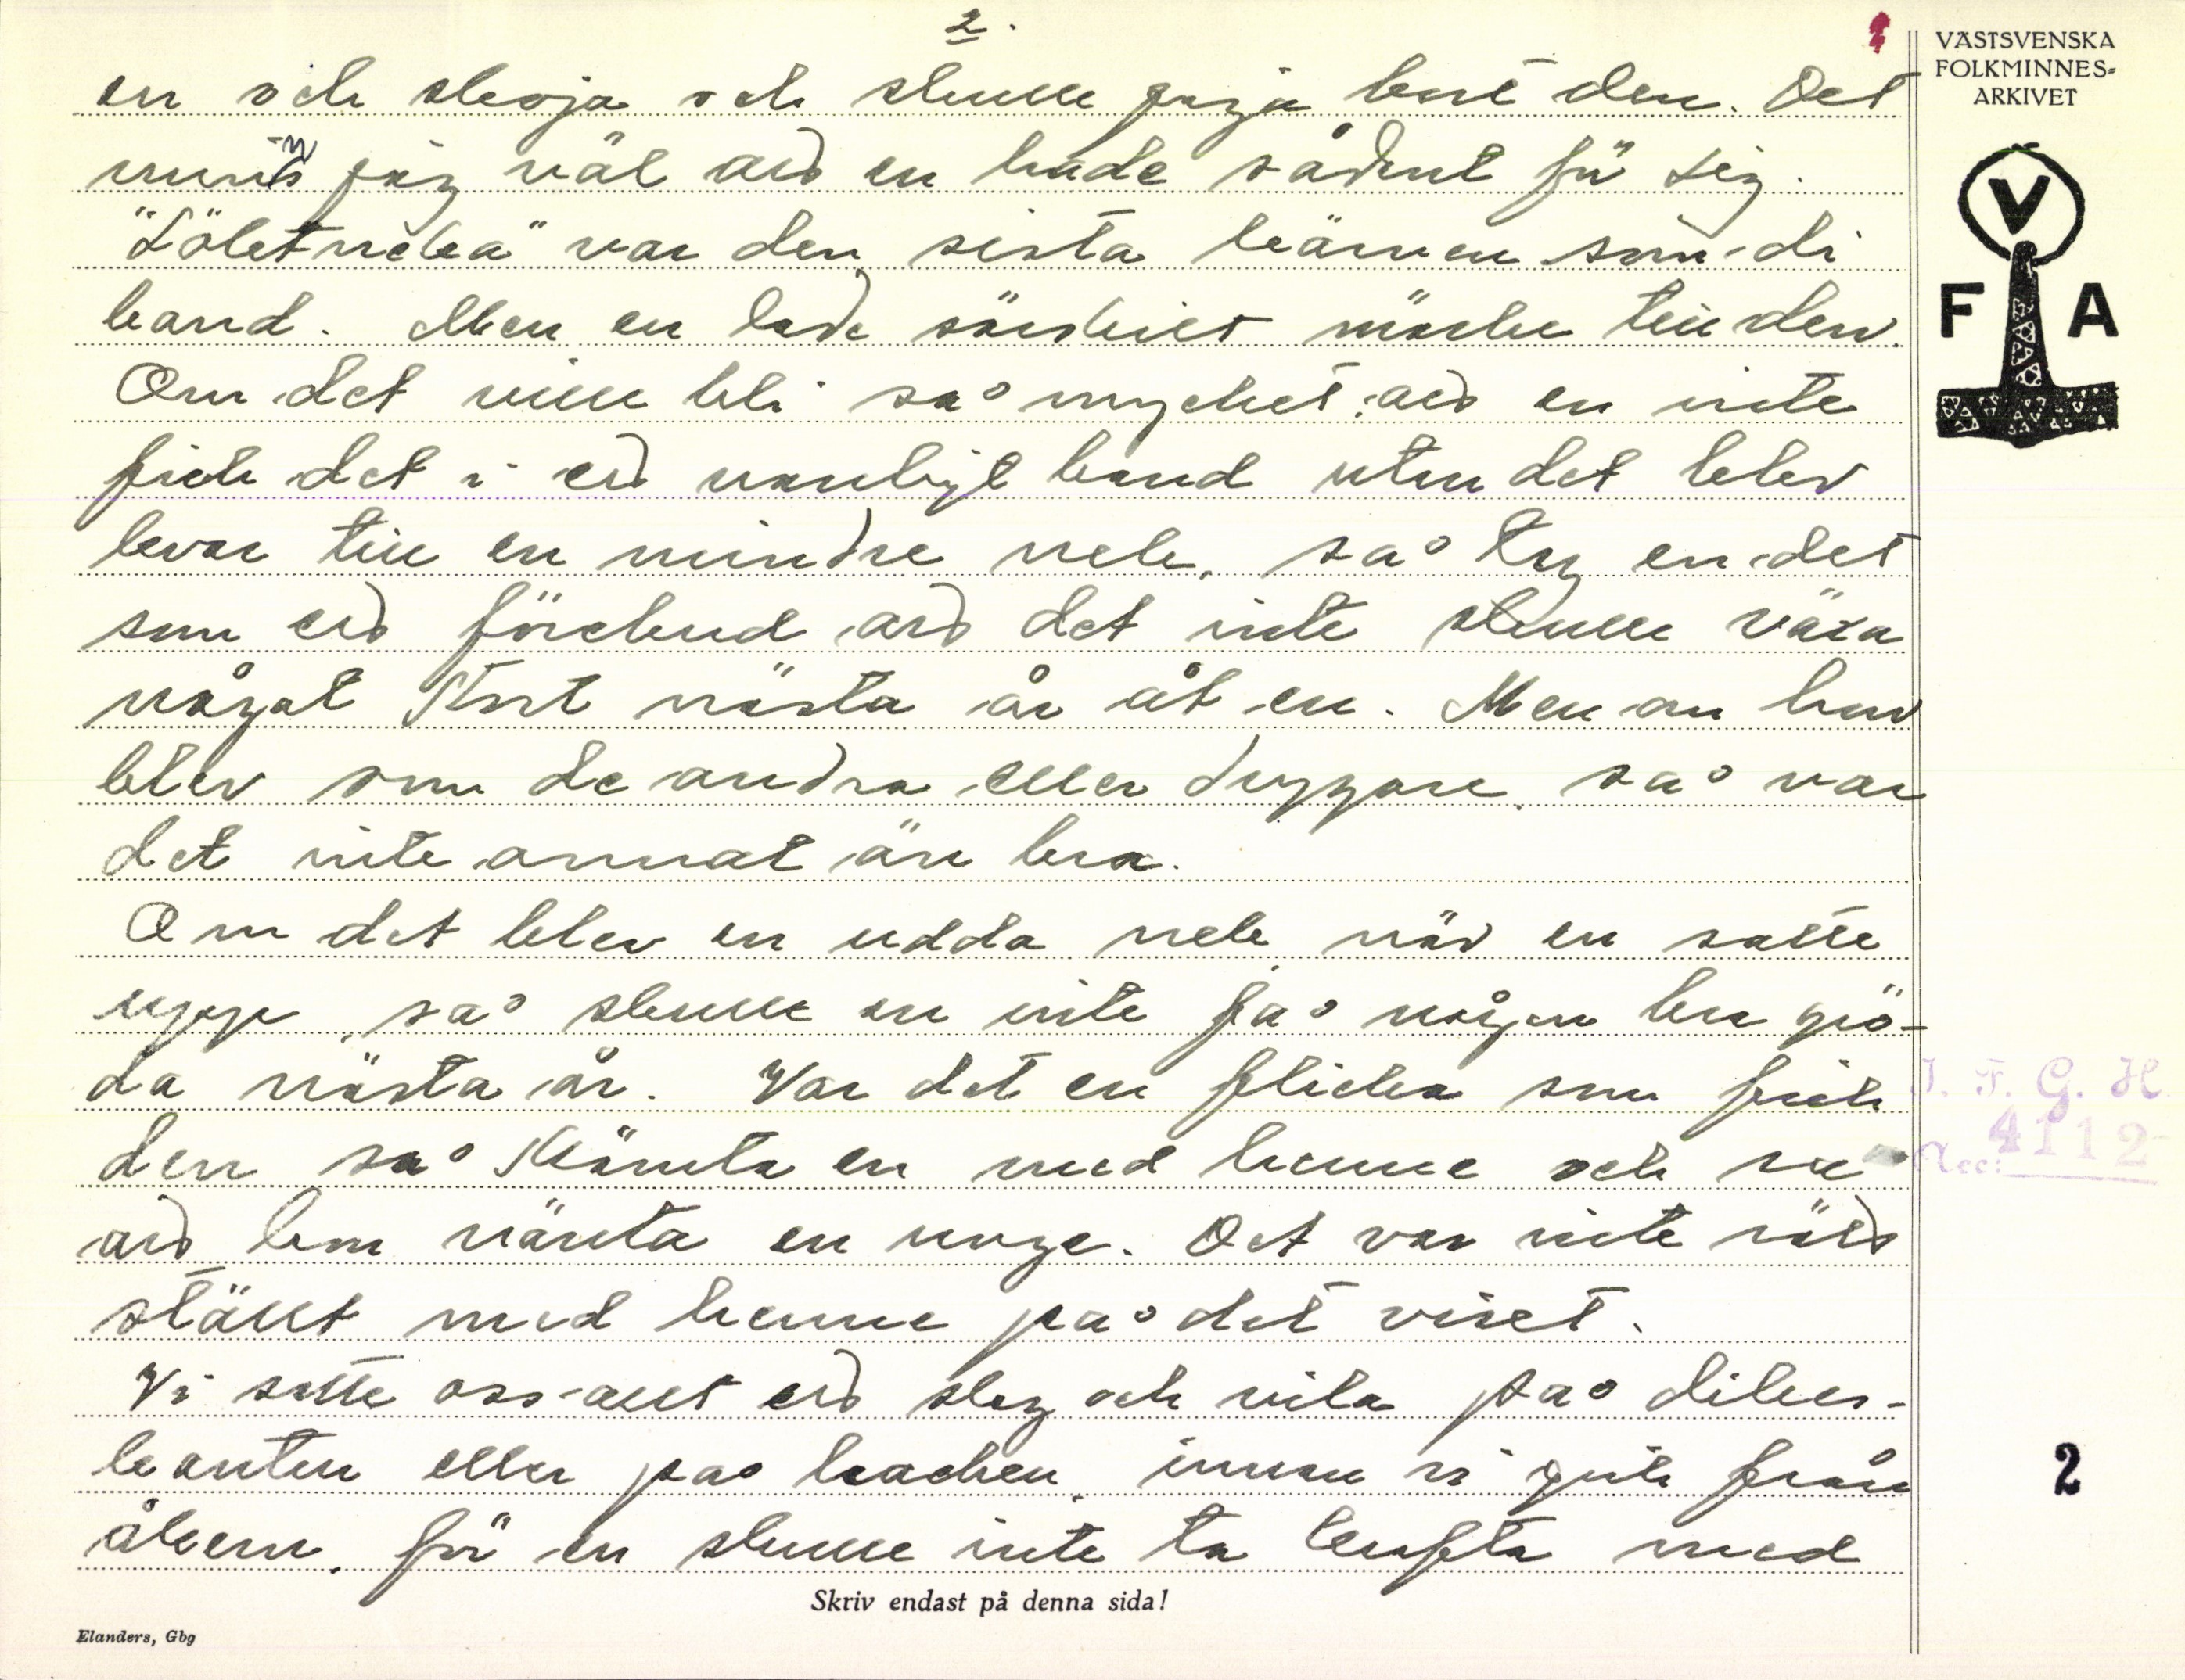 2.
en och slevja och skulle jaga bort den. Det
minns jag väl att en hade sådent för sig.
"Löketneka" var den sista kärven som di
band. Men en lade särskilt märke till den.
Om det ville bli så mycket att en inte
fick det i ett vanligt band utan det blev
bara till en mindre nek, så tog en det
som ett förebud att det inte skulle växa
något stort nästa år åt en. Men om han
blev som de andra eller dryggare så var
det inte annat än bra.
Om det blev en udda nek när en satte
upp, så skulle en inte få någon bra grö-
da nästa år. Var det en flicka som fick
den så skämta en med henne och sa
att hon vänta en unge. Det var inte rätt
ställt med henne på det viset.
Vi satte oss allt ett slag och vila på dikes-
kanten eller på backen innan vi gick från
åkern, för en skulle inte ta krafta med
Skriv endast på denna sida!
Elanders, Gbg
VÄSTSVENSKA
FOLKMINNES-
ARKIVET
V
F A
I. F. G. H.
Acc: 4112
2